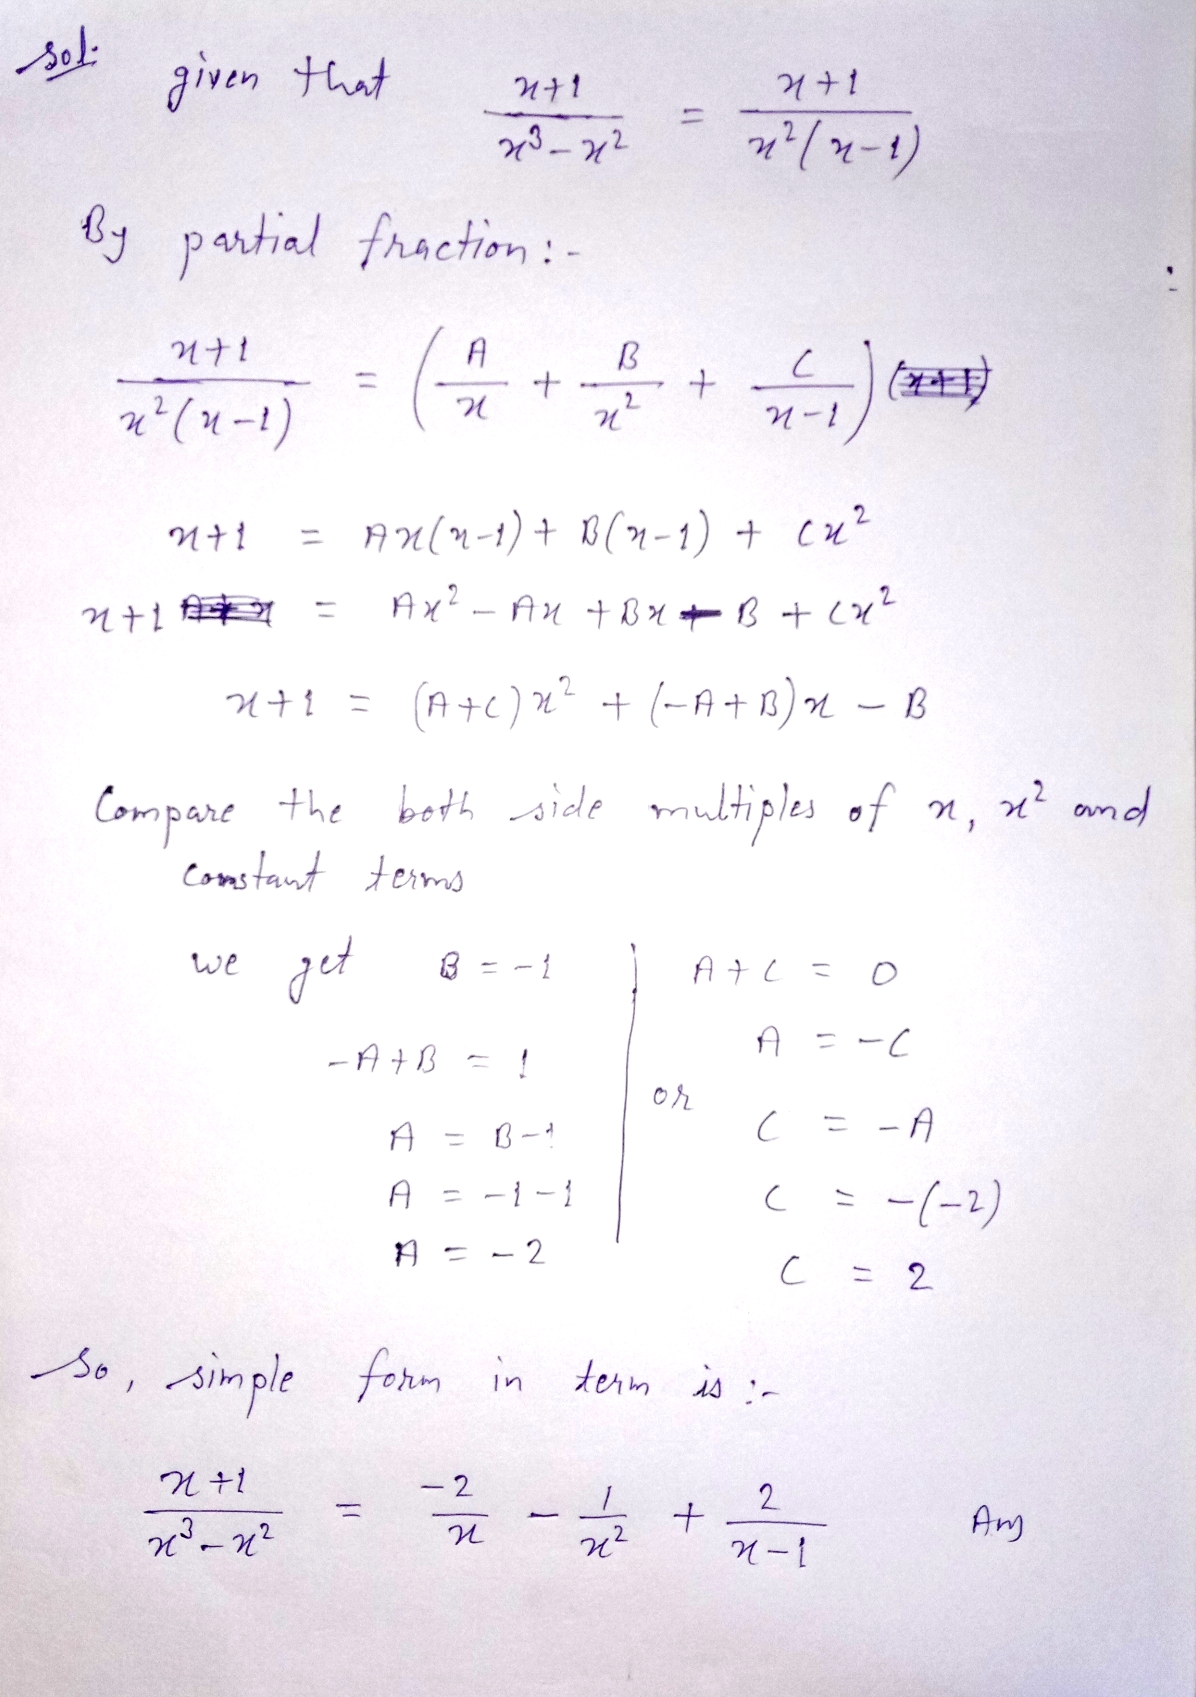 Sol:- given that (x+1)/(x³-x²) = (x+1)/(x²(x-1))
By partial fraction:-
(x+1)/(x²(x-1)) = (A/x + B/x² + C/(x-1))
x+1 = Ax(x-1) + B(x-1) + Cx²
x+1 = Ax² - Ax + Bx - B + Cx²
x+1 = (A+C)x² + (-A+B)x - B
Compare the both side multiples of x, x² and
constant terms
we get B = -1
-A+B = 1
A = B-1
A = -1-1
A = -2
A+C = 0
A = -C
or C = -A
C = -(-2)
C = 2
So, simple form in term is :-
(x+1)/(x³-x²) = -2/x - 1/x² + 2/(x-1) Ans